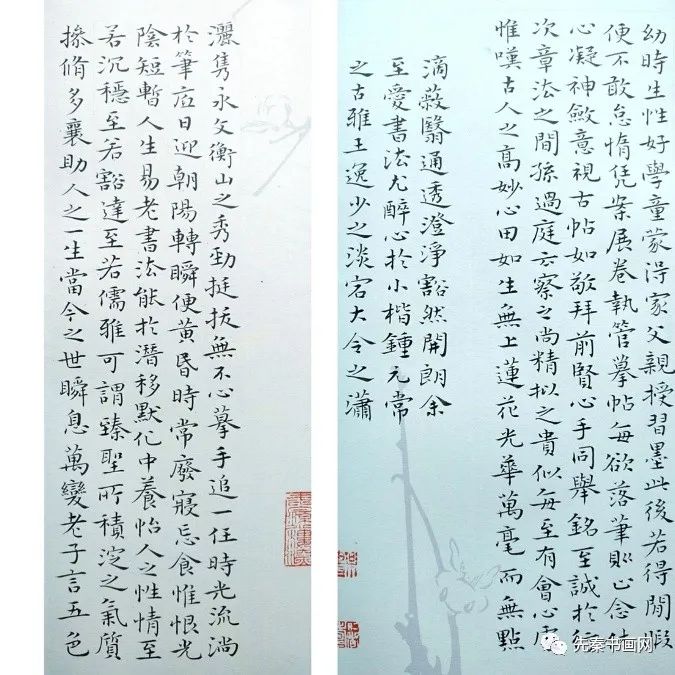 幼時生性好學童蒙得家父親授習墨此後若得閒暇
便不敢怠惰凭案展卷執管摹帖每欲落筆則止念
心凝神斂意視古帖如敬拜前賢心手同舉銘至誠於行
次章法之間孫過庭云察之尚精拟之貴似每至有會心處
惟嘆古人之高妙心田如生無上蓮花光華萬毫而無點
滴蔽翳通透澄淨豁然開朗余
至愛書法尤醉心於小楷鍾元常
之古雅王逸少之淡宕大令之瀟
灑雋永文衡山之秀勁挺拔無不心摹手追一任時光流淌
於筆底日迎朝陽轉瞬便黃昏時常廢寢忘食惟恨光
陰短暫人生易老書法能於潛移默化中養怡人之性情至
若沉穩至若豁達至若儒雅可謂臻聖所積淀之氣質
操脩多襄助人之一生當今之世瞬息萬變老子言五色
先秦书画网